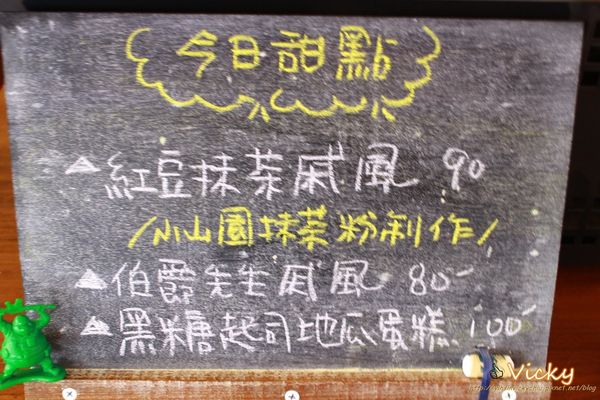 今日甜點
紅豆抹茶戚風 90
/小山園抹茶粉制作/
伯爵先生戚風 80-
黑糖起司地瓜蛋糕 100-
Vicky